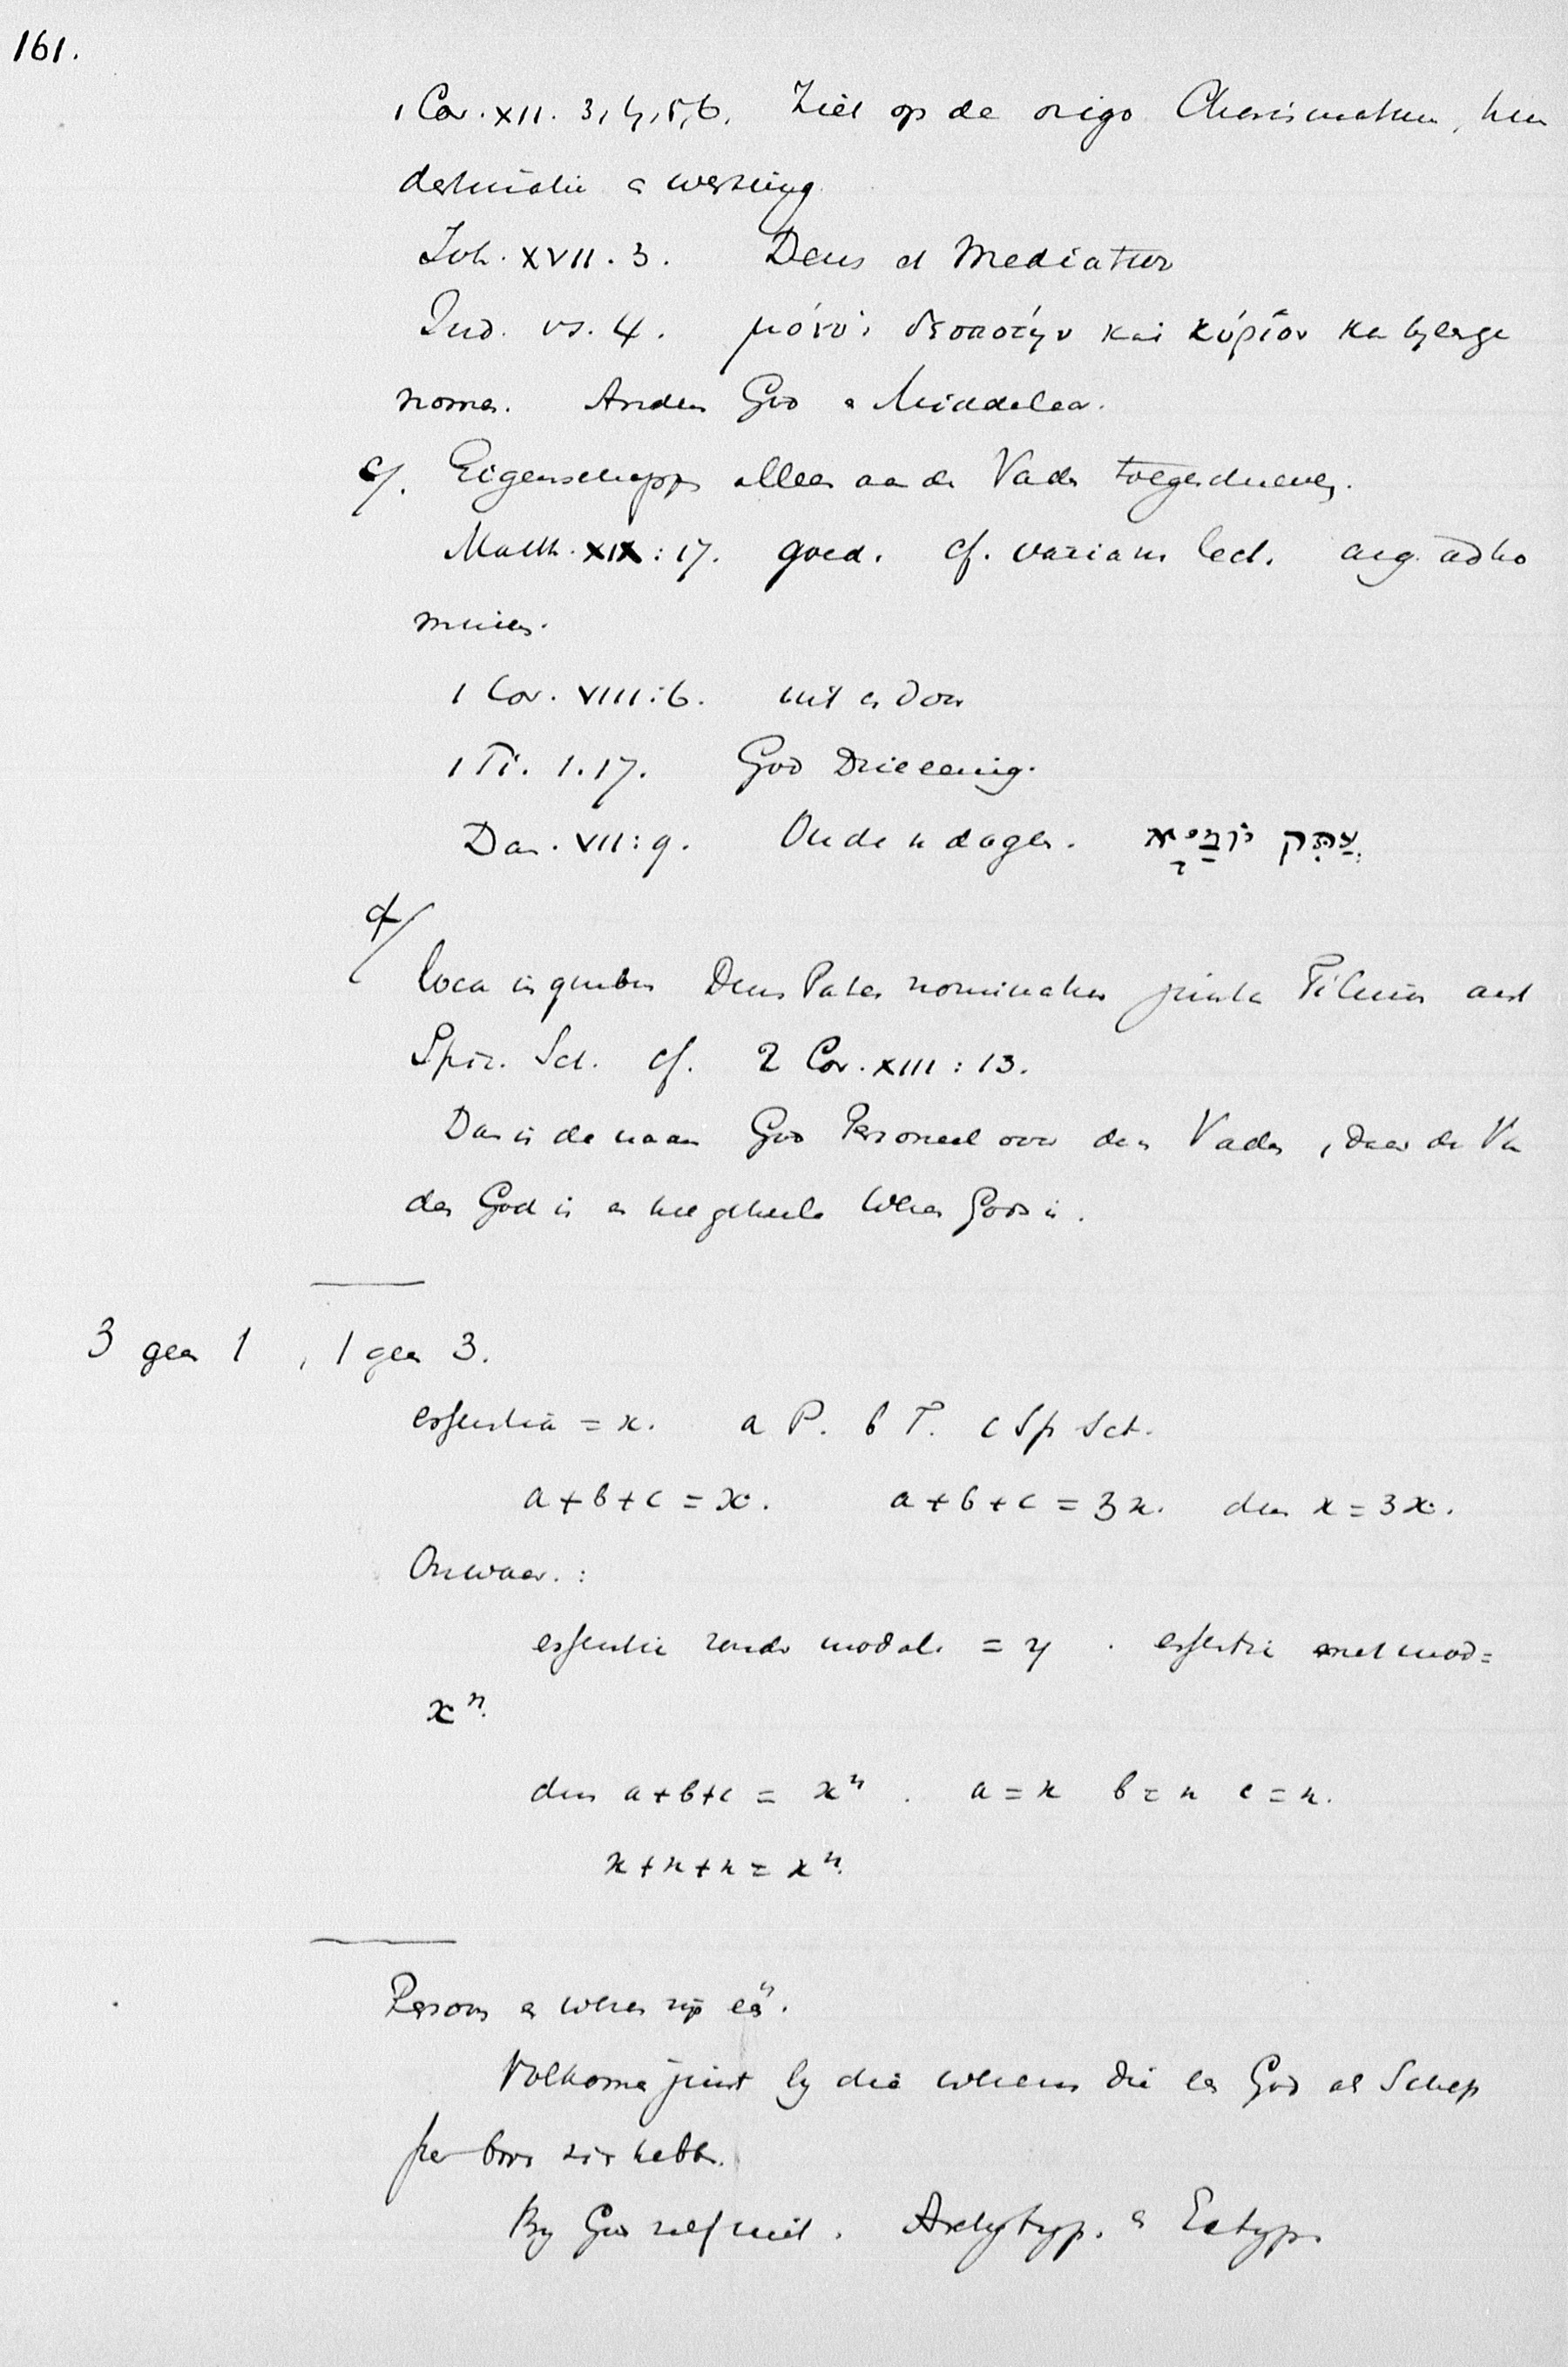 161.
1 Cor. XII. 3, 4, 5, 6. Ziet op de origo Charismatum, hun
destinatie en werking.
Joh. XVII. 3. Deus et Mediator
Jud. vs. 4. μόνον δεσπότην καὶ κύριον sa
nomen. Anders God en Middelaar.
c/. Eigenschappen alleen aan den Vader toegeschreven.
Matth. XIX : 17. goed. cf. varians lect. arg. ad ho
minem.
1 Cor. VIII : 6. uit en door
1 Ti. 1. 17. God Drieeenig.
Dan. VII : 9. Oude der dagen. עתיק יומיא
d/
loca in quibus Deus Pater nominatur juxta Filium aut
Spir. Sct. cf. 2 Cor. XIII : 13.
Dan is de naam God Personeel voor den Vader, daar de Va
der God is en het geheele Wezen Gods is.
3 geen 1, 1 geen 3.
essentia = x. a P. b F. c Sp Sct.
a + b + c = x. a + b + c = 3x. dus x = 3x.
Onwaar. :
essentie zonder modal. = y. essentie met mod =
xⁿ.
dus a + b + c = xⁿ. a = x b = x c = x.
x + x + x = xⁿ.
Persoon en wezen zijn één.
Volkomen juist by die wezens die een God als Schep
per boven zich hebben.
By God zelf niet. Archtyp. en Ectyp.